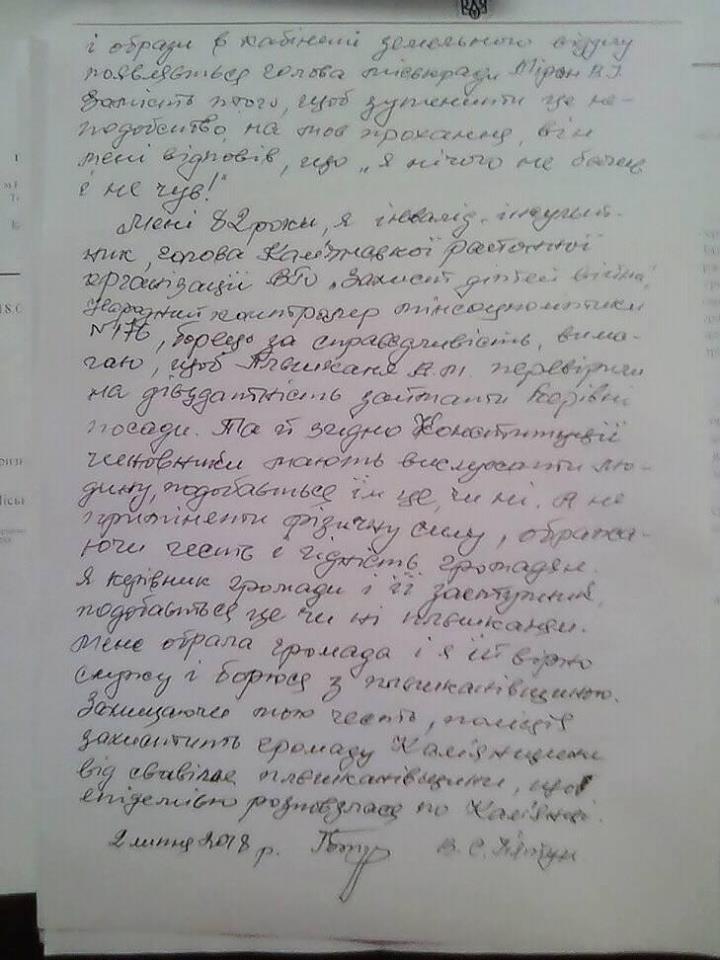 і образи в кабінеті земельного відділу
появляється голова міськради Мірон В.І.
Замість того, щоб зупинити це не-
подобство, на моє прохання, він
мені відповів, що „я нічого не бачив
і не чув!"
Мені 82 роки, я інвалід,
ник, голова Кам'янської районної
організації ВГО „Захист дітей війни",
Народний контролер
№176, борець за справедливість, вима-
гаю, щоб перевірили
на дієздатність займати керівні
посади. Та й згідно Конституції
чиновники мають вислухати лю-
дину, подобається їм це, чи ні. А не
приміняти фізичну силу, обража-
ючи честь і гідність громадян.
Я керівник громади і її заступник,
подобається це чи ні
Мене обрала громада і я їй вірно
служу і борюся з
Захищаючи мою честь, поліція
захистить громаду Кам'янщини
від свавілля що
епідемією розповзлася по Кам'янці.
2 липня 2018 р. В. С.